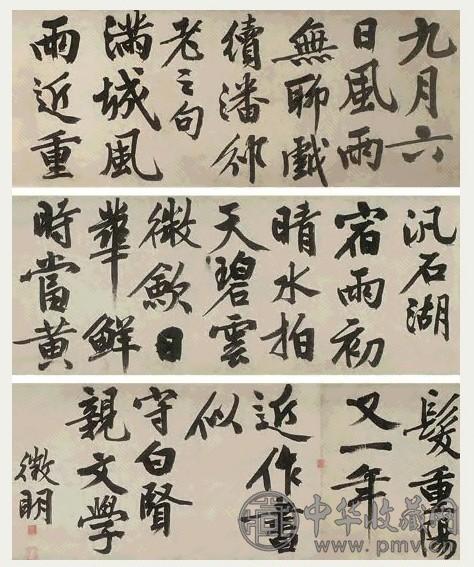 九月六
日風雨
無聊戲
續潘邠
老之句
滿城風
雨近重
汎石湖
宿雨初
晴水拍
天碧雲
微斂日
華鮮
時當黃
髮重陽
又一年
近作書
似
守白賢
親文學
徵明
中华收藏网
www.pmv.cn